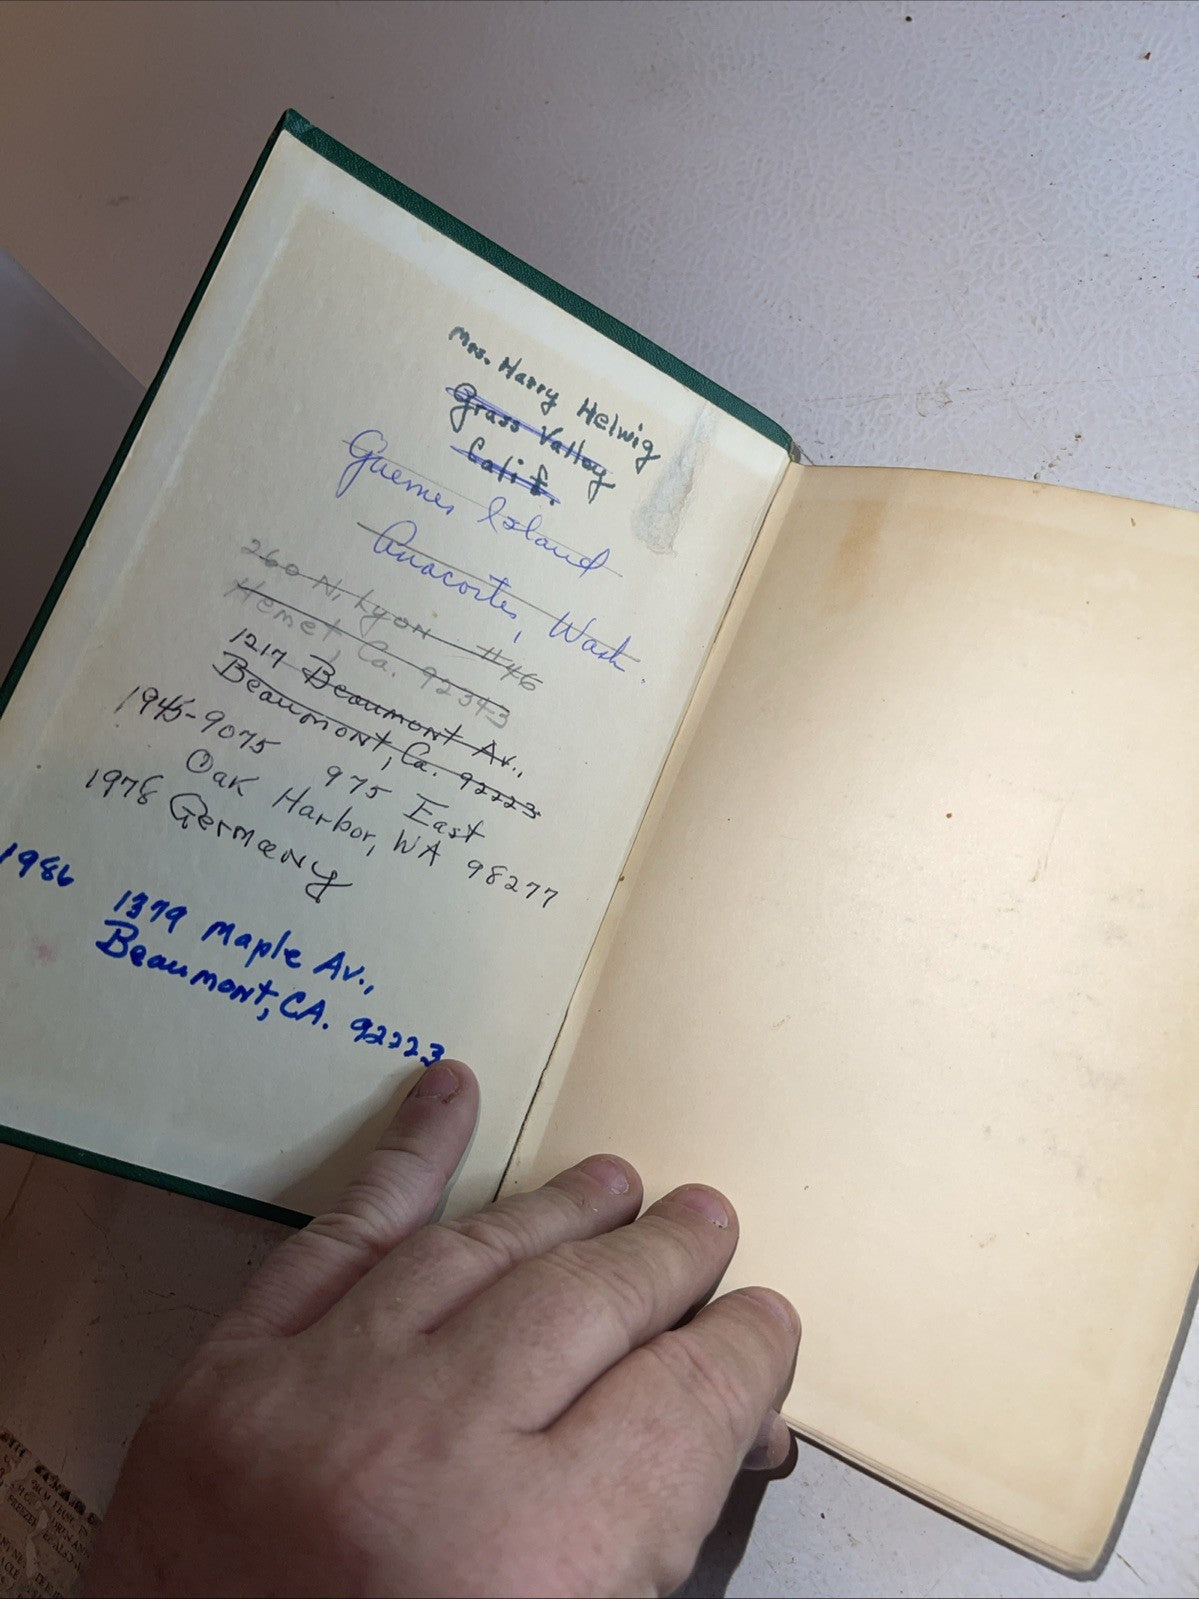 Mrs. Harry Helwig
Grass Valley
Calif.
Guemes Island
Anacortes, Wash.
260 N. Lyon #46
Hemet, Ca. 92343
1217 Beaumont Av.,
Beaumont, Ca. 92223
1945-9075 975 East
Oak Harbor, WA 98277
1978 Germany
1986 1379 Maple Av.,
Beaumont, CA. 92223